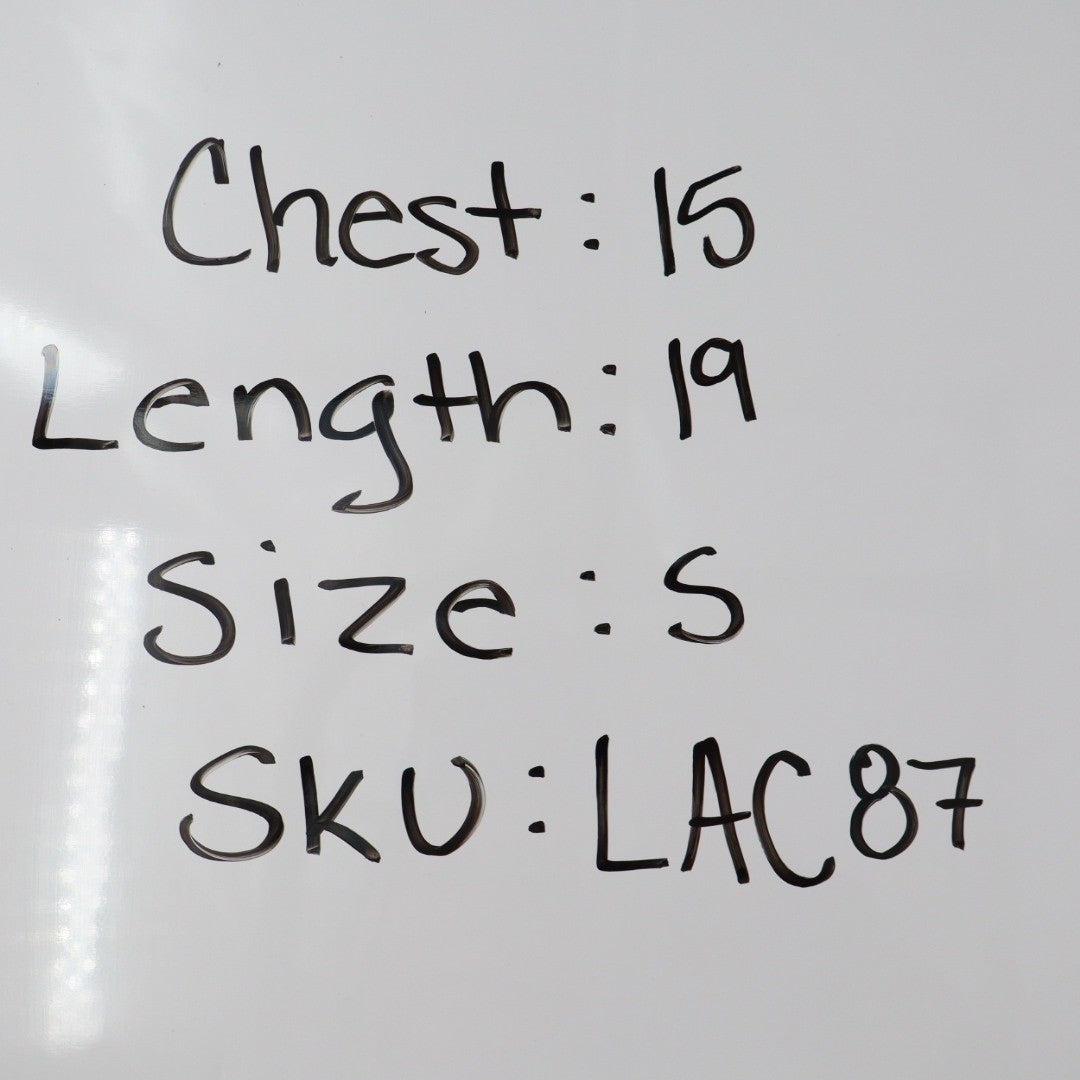 Chest: 15
Length: 19
Size: S
SKU: LAC87